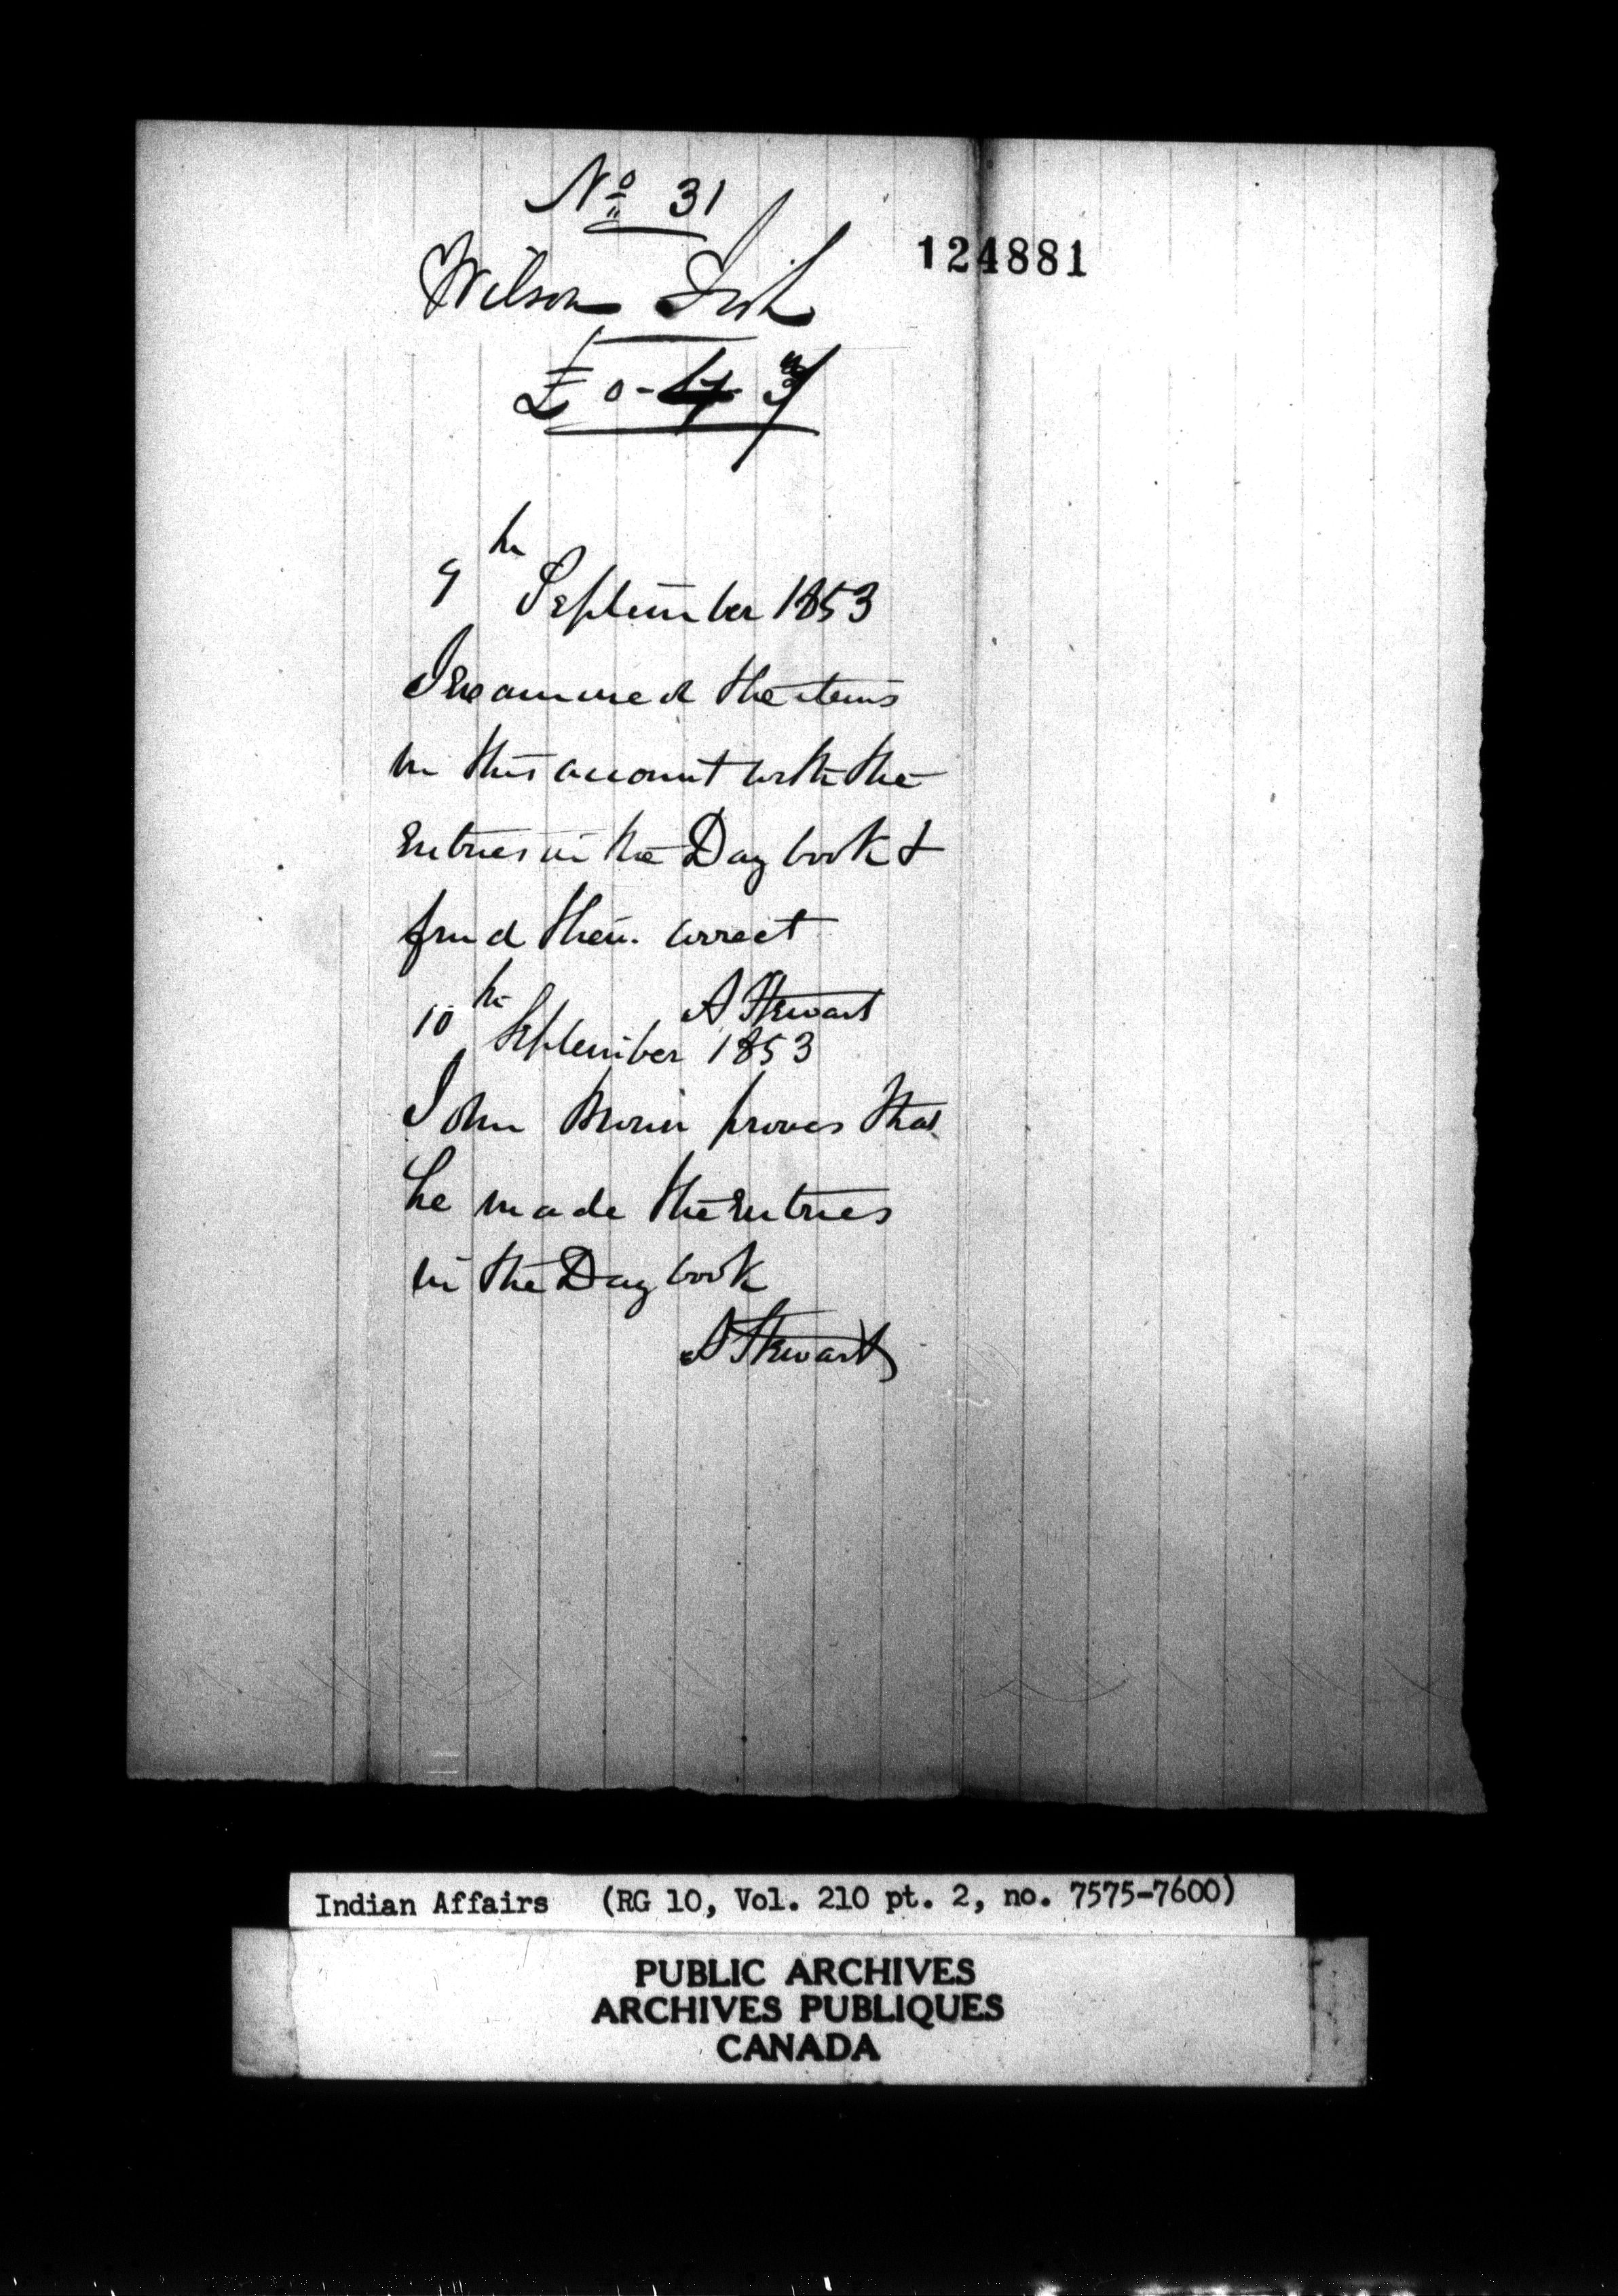 No 31
124881
Wilson
£ 0-4-3
9th September 1853
I Examined the items
in this account with the
Entries in the Day book &
find them correct
A Stewart
10th September 1853
John proves that
he made the Entries
in the Day book
A Stewart
Indian Affairs (RG 10, Vol. 210 pt. 2, no. 7575-7600)
PUBLIC ARCHIVES
ARCHIVES PUBLIQUES
CANADA